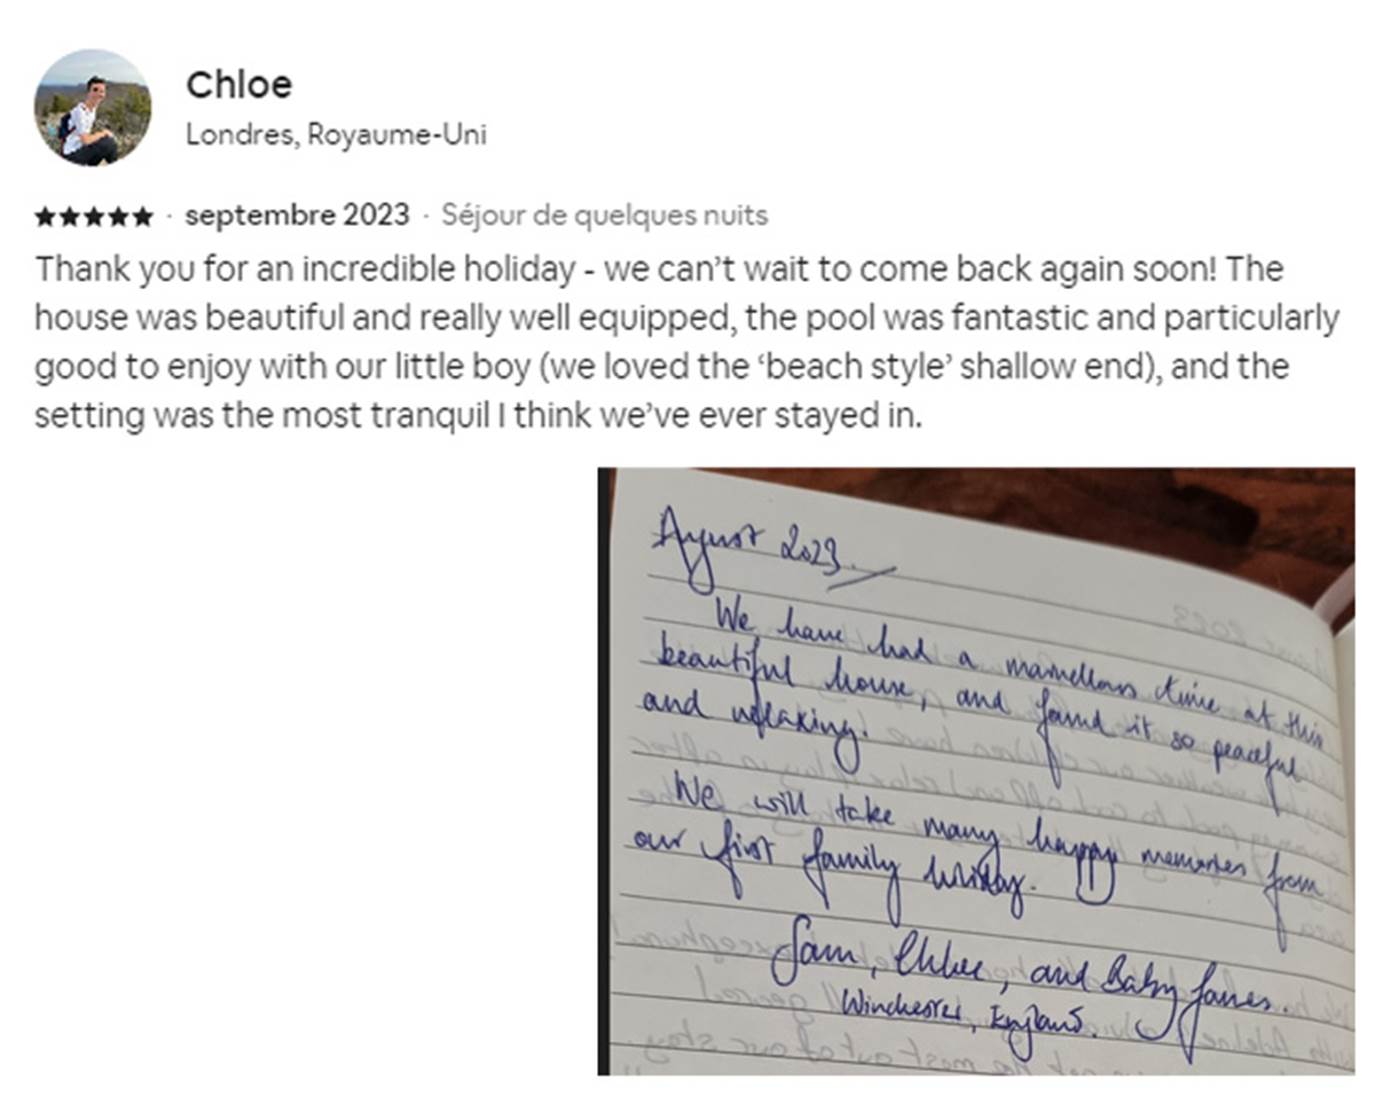 Chloe
Londres, Royaume-Uni
★★★★★ · septembre 2023 · Séjour de quelques nuits
Thank you for an incredible holiday - we can’t wait to come back again soon! The
house was beautiful and really well equipped, the pool was fantastic and particularly
good to enjoy with our little boy (we loved the ‘beach style’ shallow end), and the
setting was the most tranquil I think we’ve ever stayed in.
August 2023.
We have had a marvellous time at this
beautiful house, and found it so peaceful
and relaxing!
We will take many happy memories from
our first family holiday.
Sam, Chloe, and Baby James.
Winchester, England.